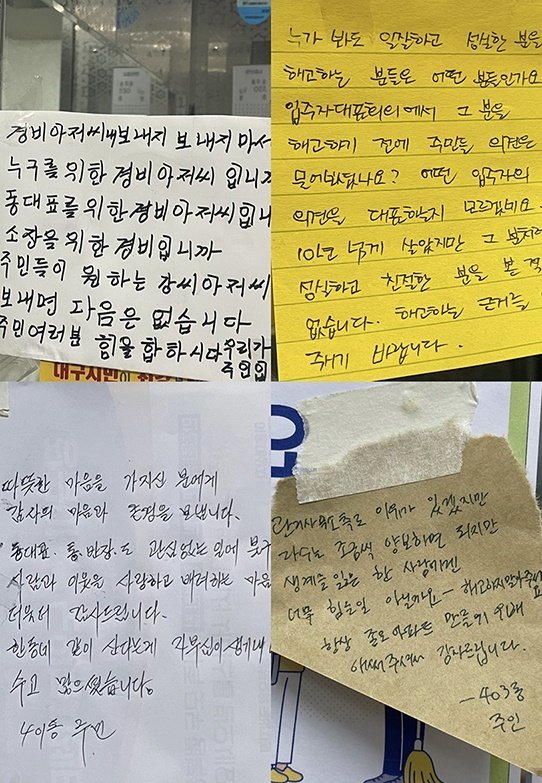 경비아저씨내보내지 보내지 마서
누구를 위한 경비아저씨 입니까
동대표를 위한 경비아저씨 입니
소장을 위한 경비입니까
주민들이 원하는 강씨아저씨
보내면 다음은 없습니다
주민여러분 힘을 합하시다 우리가
주인입
대구시민이
누가 봐도 일잘하고 성실한 분을
해고하는 분들은 어떤 분들인가요
입주자대표회의에서 그 분을
해고하기 전에 주민들 의견은
물어보셨나요? 어떤 입주자의
의견을 대표하는지 모르겠네요.
10년 넘게 살았지만 그 분처럼
성실하고 친절한 분을 본 적
없습니다. 해고하는 근거를
주시기 바랍니다.
따뜻한 마음을 가지신 분에게
감사의 마음과 존경을 보냅니다.
동대표. 통.반장.도 관심없는 일에
사람과 이웃을 사랑하고 배려하는 마음
더욱더 감사드립니다.
한동네 같이 산다는게 자부심이 생기네
수고 많으셨습니다.
401동 주민
관리사무소측도 이유가 있겠지만
다수는 조금씩 양보하면 되지만
생계를 잃은 한 사람에겐
너무 힘든일 아닐까요- 해고하지말아주세요
항상 좋은아파트 만들기 위해
애써주셔서 감사드립니다.
-403동
주민